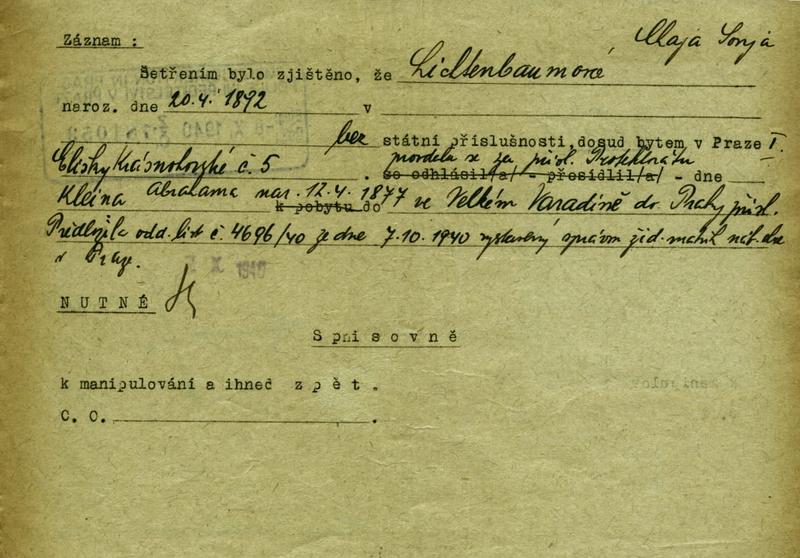 Záznam :
Maja Sonja
Šetřením bylo zjištěno, že Lichtenbaumová
naroz. dne 20.4. 1892 v
bez státní příslušnosti, dosud bytem v Praze I.
Elišky Krásnohorské č. 5 . provdala se za přísl. Protektorátu
se odhlásil/a/ - přesídlil/a/ - dne
Kleina Abrahama nar. 12.4. 1877 ve Velkém Varadíně do Prahy přísl.
k pobytu do
Předložila odd. list č. 4696/40 ze dne 7.10.1940 vystavený správou žid. matrik náb. obce
v Praze.
X 1940
NUTNÉ
Spisovně
k manipulování a ihneď zpět.
C. O. .